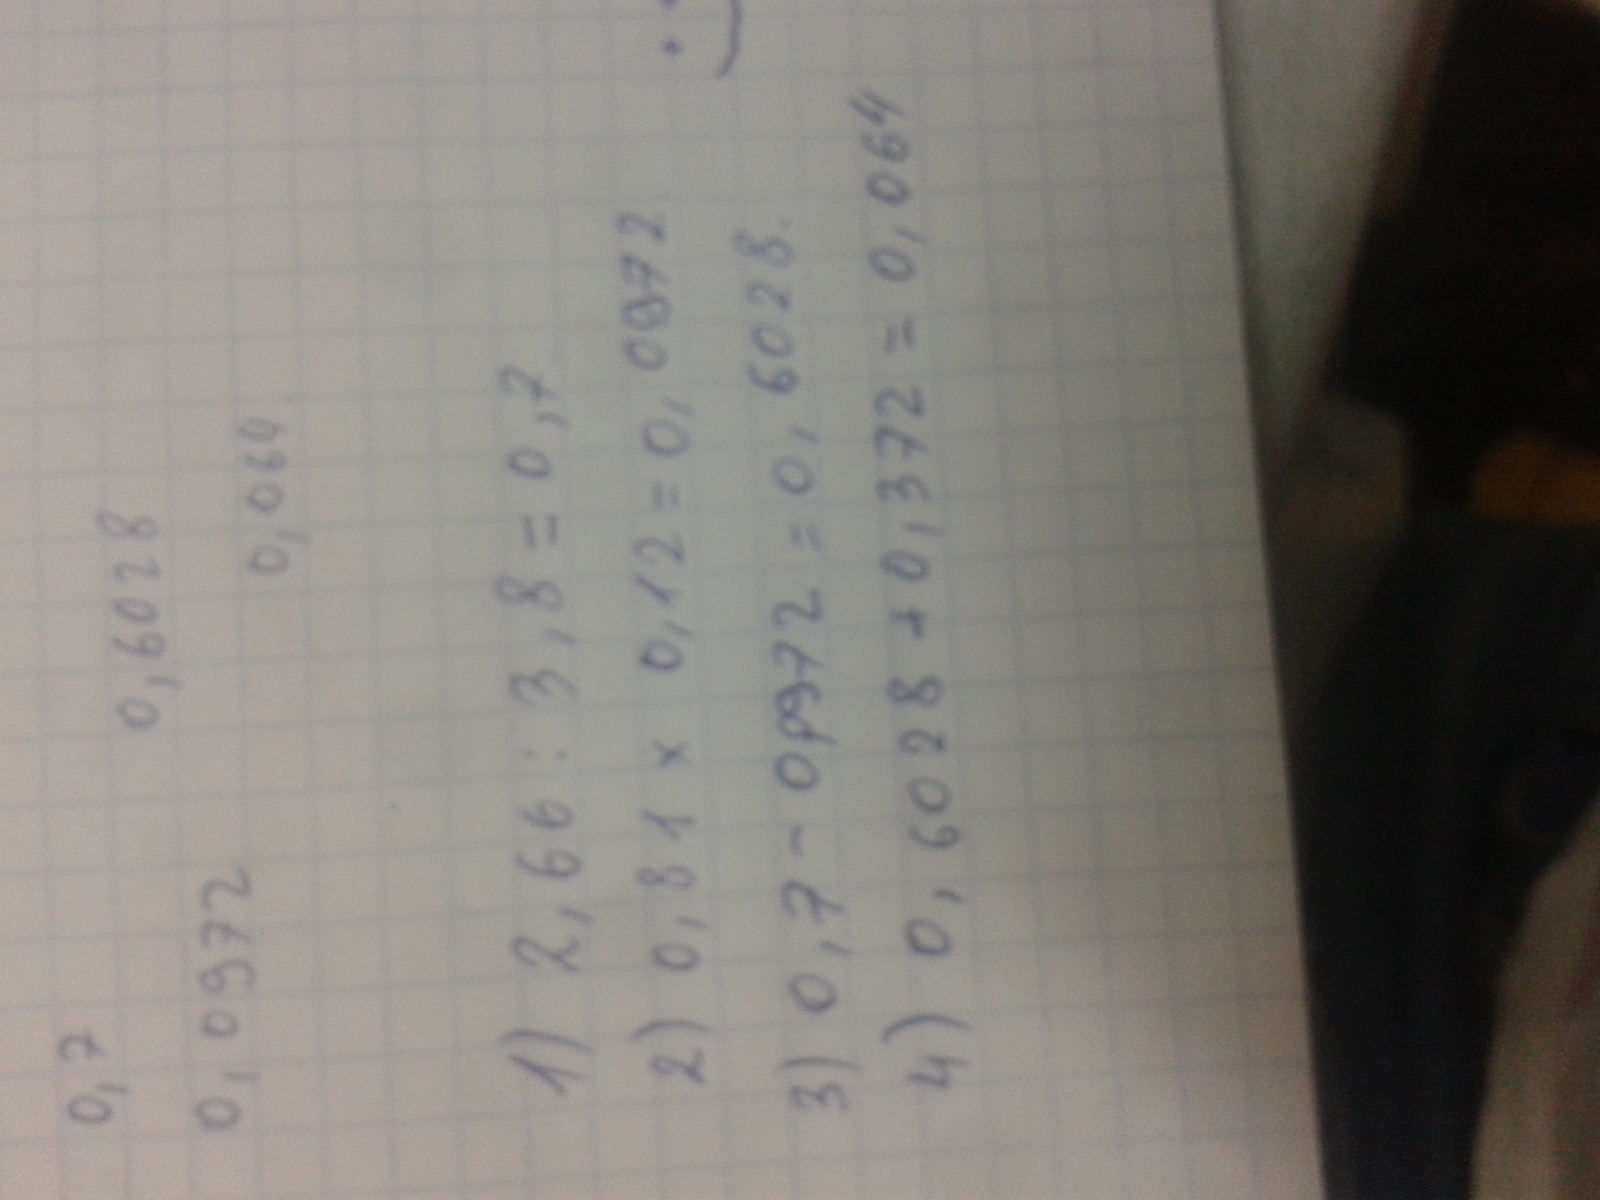 0,7
0,6028
0,0972
0,064
1) 2,66 : 3,8 = 0,7
2) 0,81 × 0,12 = 0,0972
3) 0,7 - 0,0972 = 0,6028.
4) 0,6028 + 0,372 = 0,064